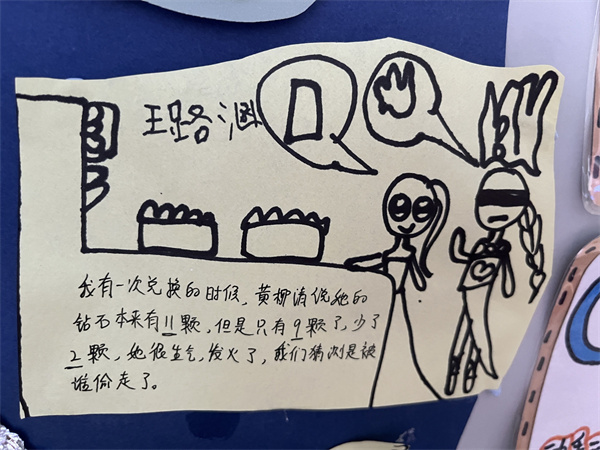 王路涵
我有一次兑换的时候，黄柳清说她的
钻石本来有11颗，但是只有9颗了，少了
2颗，她很生气，发火了，我们猜测是被
谁偷走了。